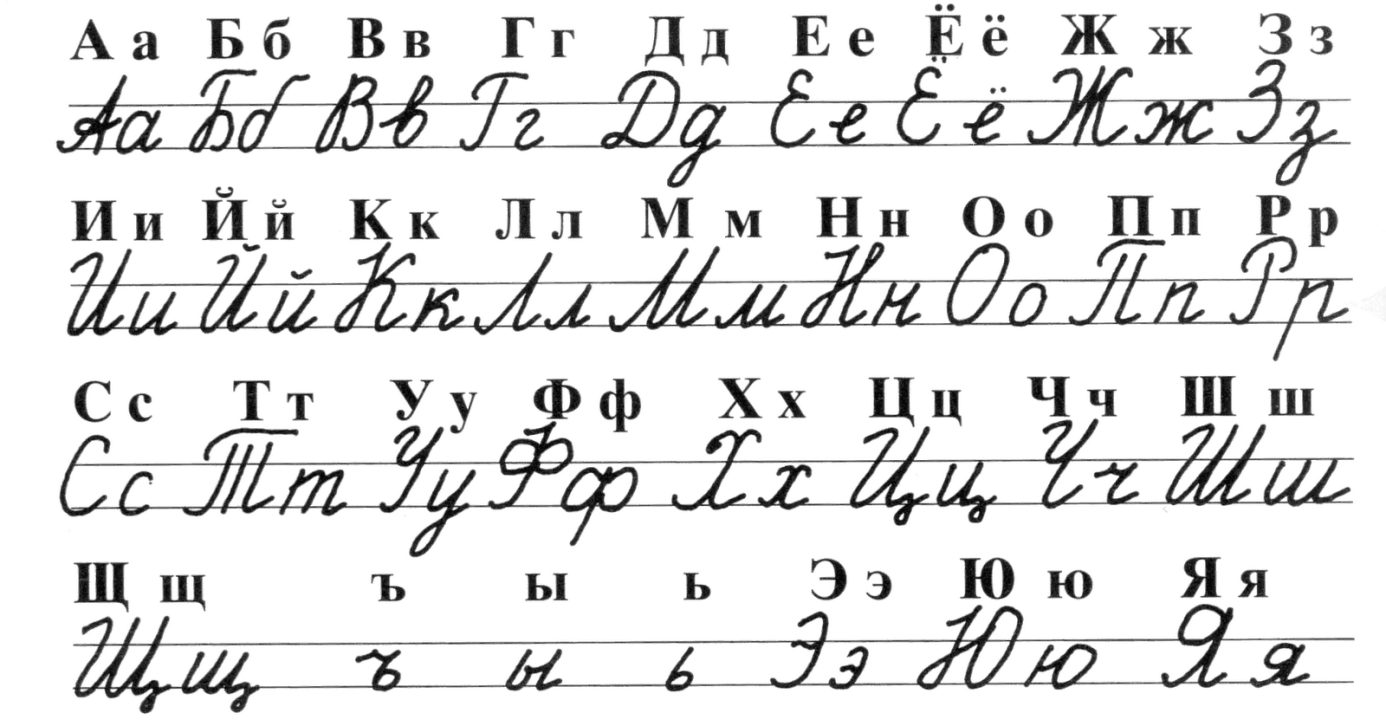 А а Б б В в Г г Д д Е е Ё ё Ж ж З з
Аа Бб Вв Гг Дд Ее Ёё Жж Зз
И и Й й К к Л л М м Н н О о П п Р р
Ии Йй Кк Лл Мм Нн Оо Пп Рр
С с Т т У у Ф ф Х х Ц ц Ч ч Ш ш
Сс Тт Уу Фф Хх Цц Чч Шш
Щ щ ъ ы ь Э э Ю ю Я я
Щщ ъ ы ь Ээ Юю Яя